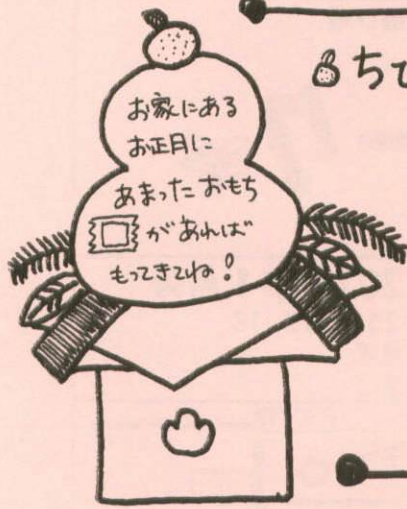 お家にある
お正月に
あまったおもち
があれば
もってきてね！